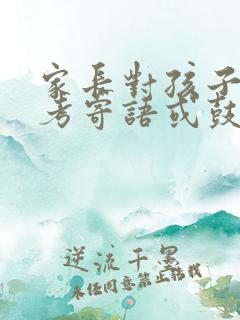 家長對孩子
考寄語或鼓
逆流千墨
未經同意禁止轉載